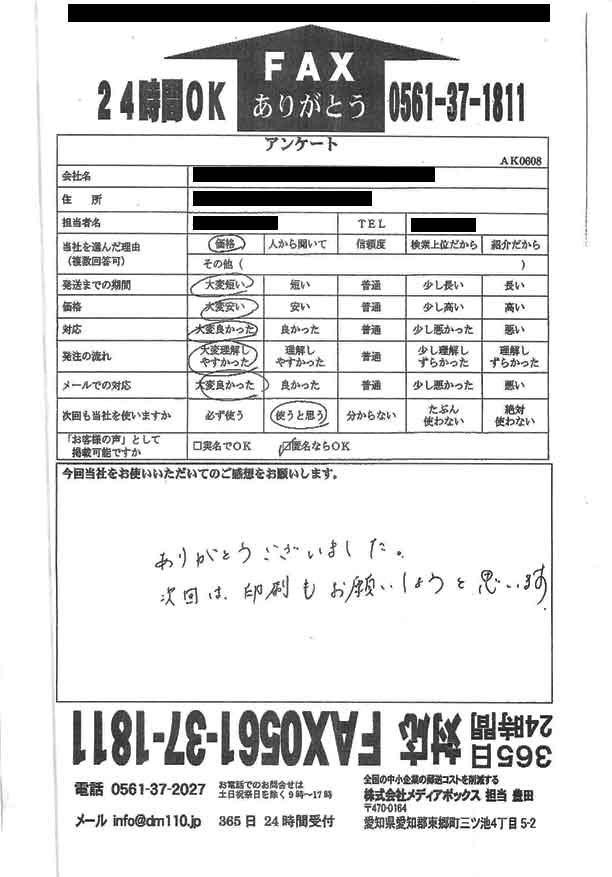 24時間OK
FAX
ありがとう
0561-37-1811
アンケート
AK0608
会社名
住 所
担当者名 TEL
当社を選んだ理由
(複数回答可)
価格 人から聞いて 信頼度 検索上位だから 紹介だから
その他( )
発送までの期間 大変短い 短い 普通 少し長い 長い
価格 大変安い 安い 普通 少し高い 高い
対応 大変良かった 良かった 普通 少し悪かった 悪い
発注の流れ 大変理解し やすかった 理解し やすかった 普通 少し理解し ずらかった 理解し ずらかった
メールでの対応 大変良かった 良かった 普通 少し悪かった 悪い
次回も当社を使いますか 必ず使う 使うと思う 分からない たぶん 使わない 絶対 使わない
「お客様の声」として
掲載可能ですか
□実名でOK ☑匿名ならOK
今回当社をお使いいただいてのご感想をお願いします。
ありがとうございました。
次回は、印刷もお願いしようと思います
365日
24時間
対応 FAX0561-37-1811
電話 0561-37-2027
お電話でのお問合せは
土日祝祭日を除く9時〜17時
メール info@dm110.jp 365日 24時間受付
全国の中小企業の郵送コストを削減する
株式会社メディアボックス 担当 豊田
〒470-0164
愛知県愛知郡東郷町三ツ池4丁目5-2